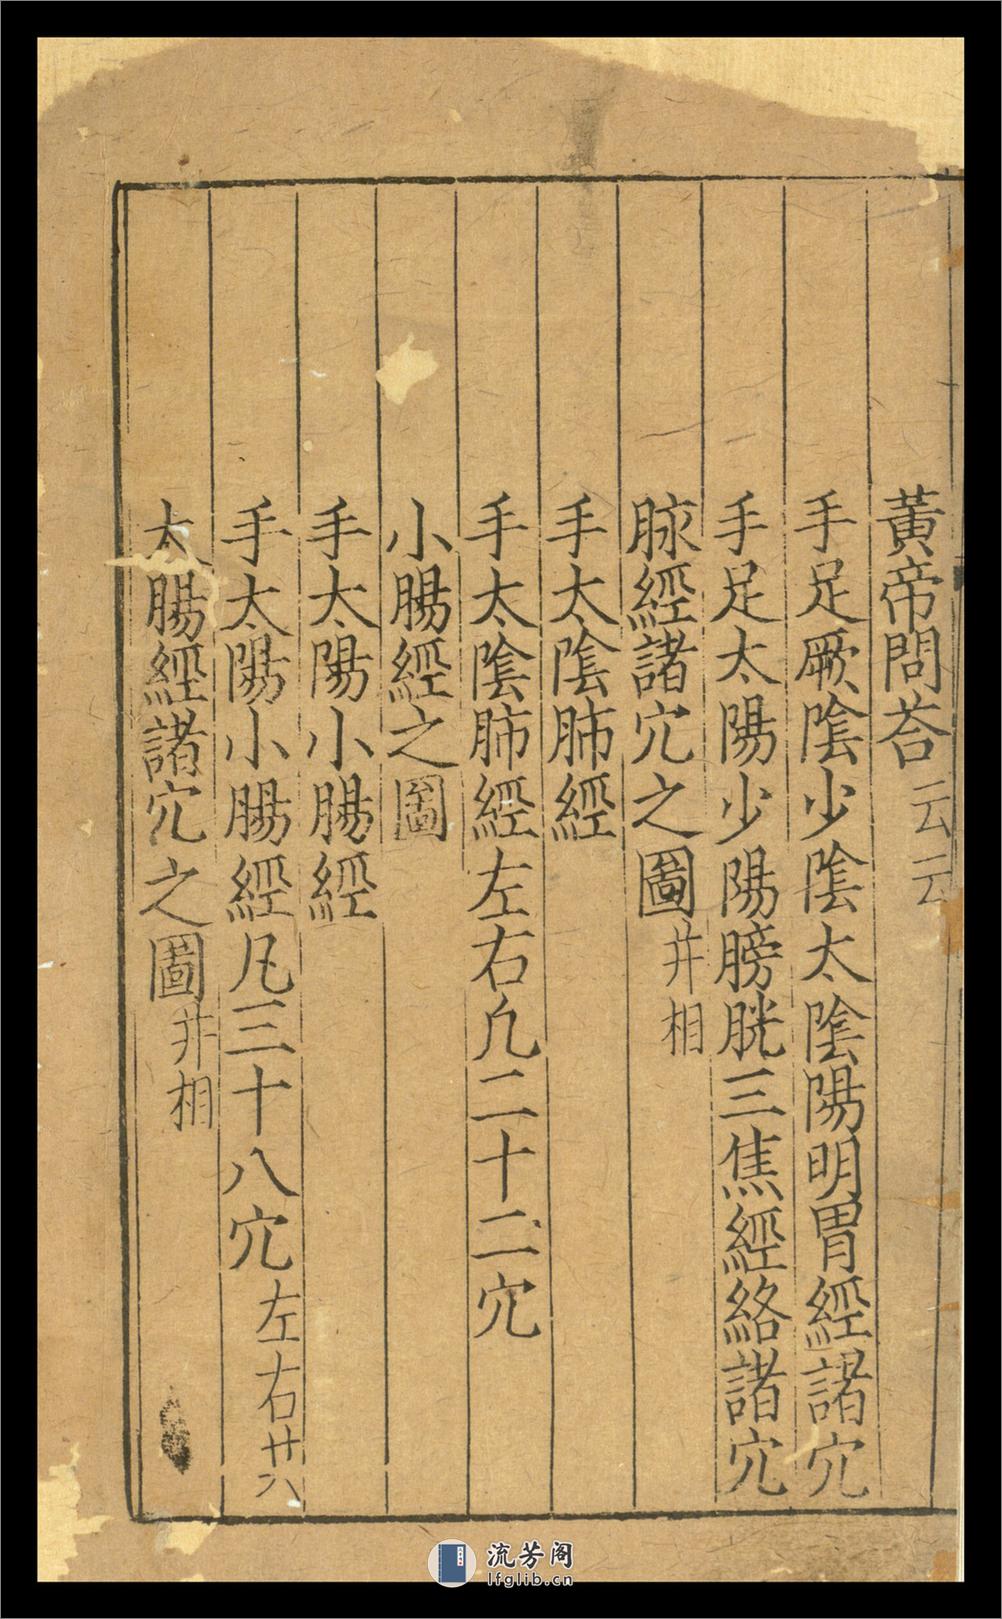 黃帝問荅云云
手足厥陰少陰太陰陽明胃經諸穴
手足太陽少陽膀胱三焦經絡諸穴
脉經諸穴之圖并相
手太陰肺經
手太陰肺經左右凢二十二穴
小腸經之圖
手太陽小腸經
手太陽小腸經凡三十八穴左右廿六
太腸經諸穴之圖并相
流芳阁
lfglib.cn